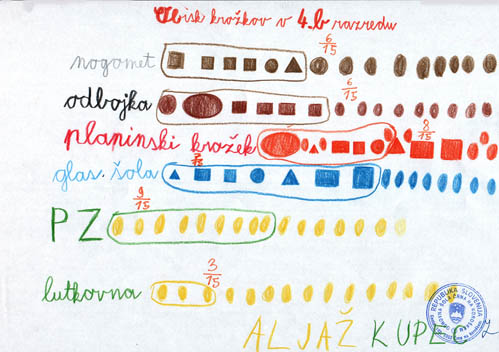 Obisk krožkov v 4.b razredu
nogomet 6/15
odbojka 6/15
plapinski krožek 8/15
glas. šola
PZ 9/15
lutkovna 3/15
REPUBLIKA SLOVENIJA
ALJAŽ KUPEC